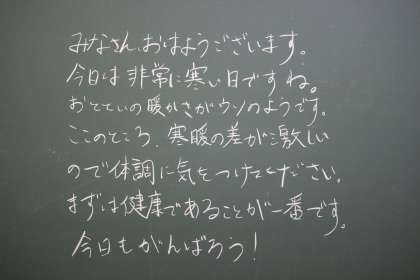 みなさん、おはようございます。
今日は非常に寒い日ですね。
おとといの暖かさがウソのようです。
ここのところ、寒暖の差が激しい
ので体調に気をつけてください。
まずは健康であることが一番です。
今日もがんばろう!